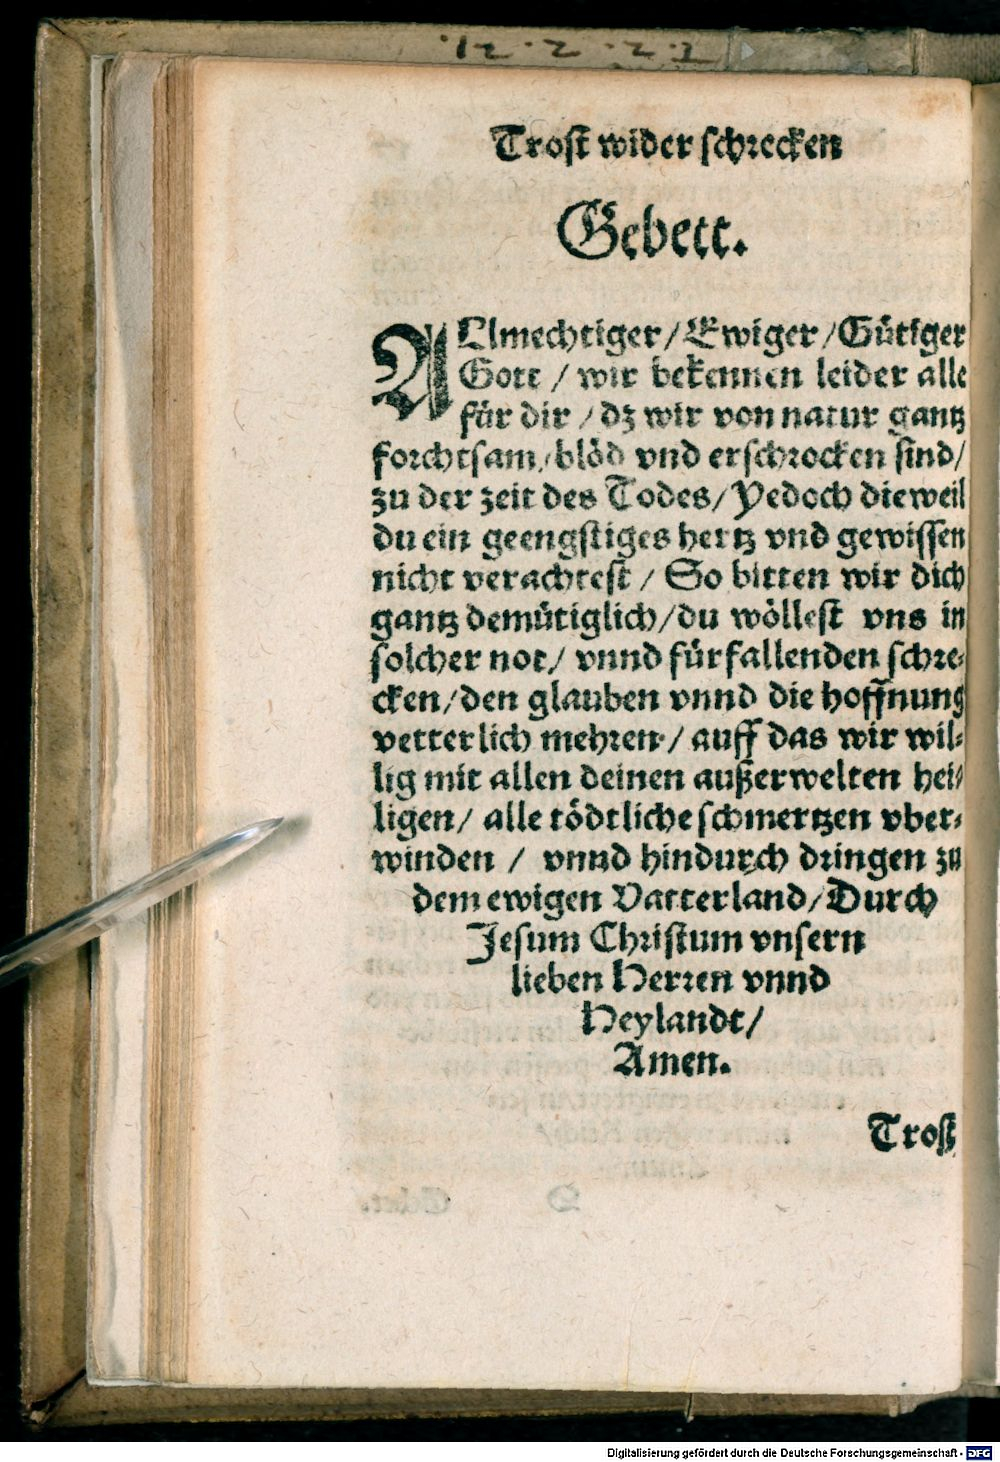 Trost wider schrecken
Gebett.
ALlmechtiger / Ewiger / Gütiger
Gott / wir bekennen leider alle
für dir / dz wir von natur gantz
forchtsam / blöd vnd erschrocken sind /
zu der zeit des Todes / Yedoch dieweil
du ein geengstiges hertz vnd gewissen
nicht verachtest / So bitten wir dich
gantz demütiglich / du wöllest vns in
solcher not / vnnd fürfallenden schre-
cken / den glauben vnnd die hoffnung
vetterlich mehren / auff das wir wil-
lig mit allen deinen außerwelten hei-
ligen / alle tödtliche schmertzen vber-
winden / vnnd hindurch dringen zu
dem ewigen Vatterland / Durch
Jesum Christum vnsern
lieben Herren vnnd
Heylandt /
Amen.
Trost
Digitalisierung gefördert durch die Deutsche Forschungsgemeinschaft - DFG